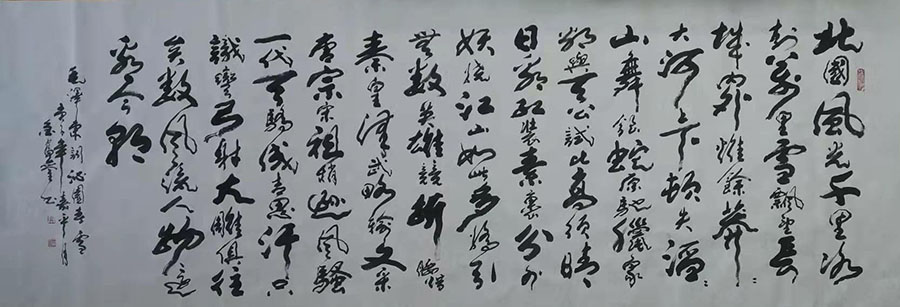 北國風光千里冰
封萬里雪飄望長
城內外惟餘莽:
大河上下頓失滔:
山舞銀蛇原馳蠟象
欲與天公試比高須晴
日看紅裝素裹分外
妖嬈江山如此多嬌引
無數英雄競折腰惜
秦皇漢武略輸文采
唐宗宋祖稍遜風騷
一代天驕成吉思汗只
識彎弓射大雕俱往
矣數風流人物還
看今朝
毛澤東詞沁園春雪
年嘉平月
書